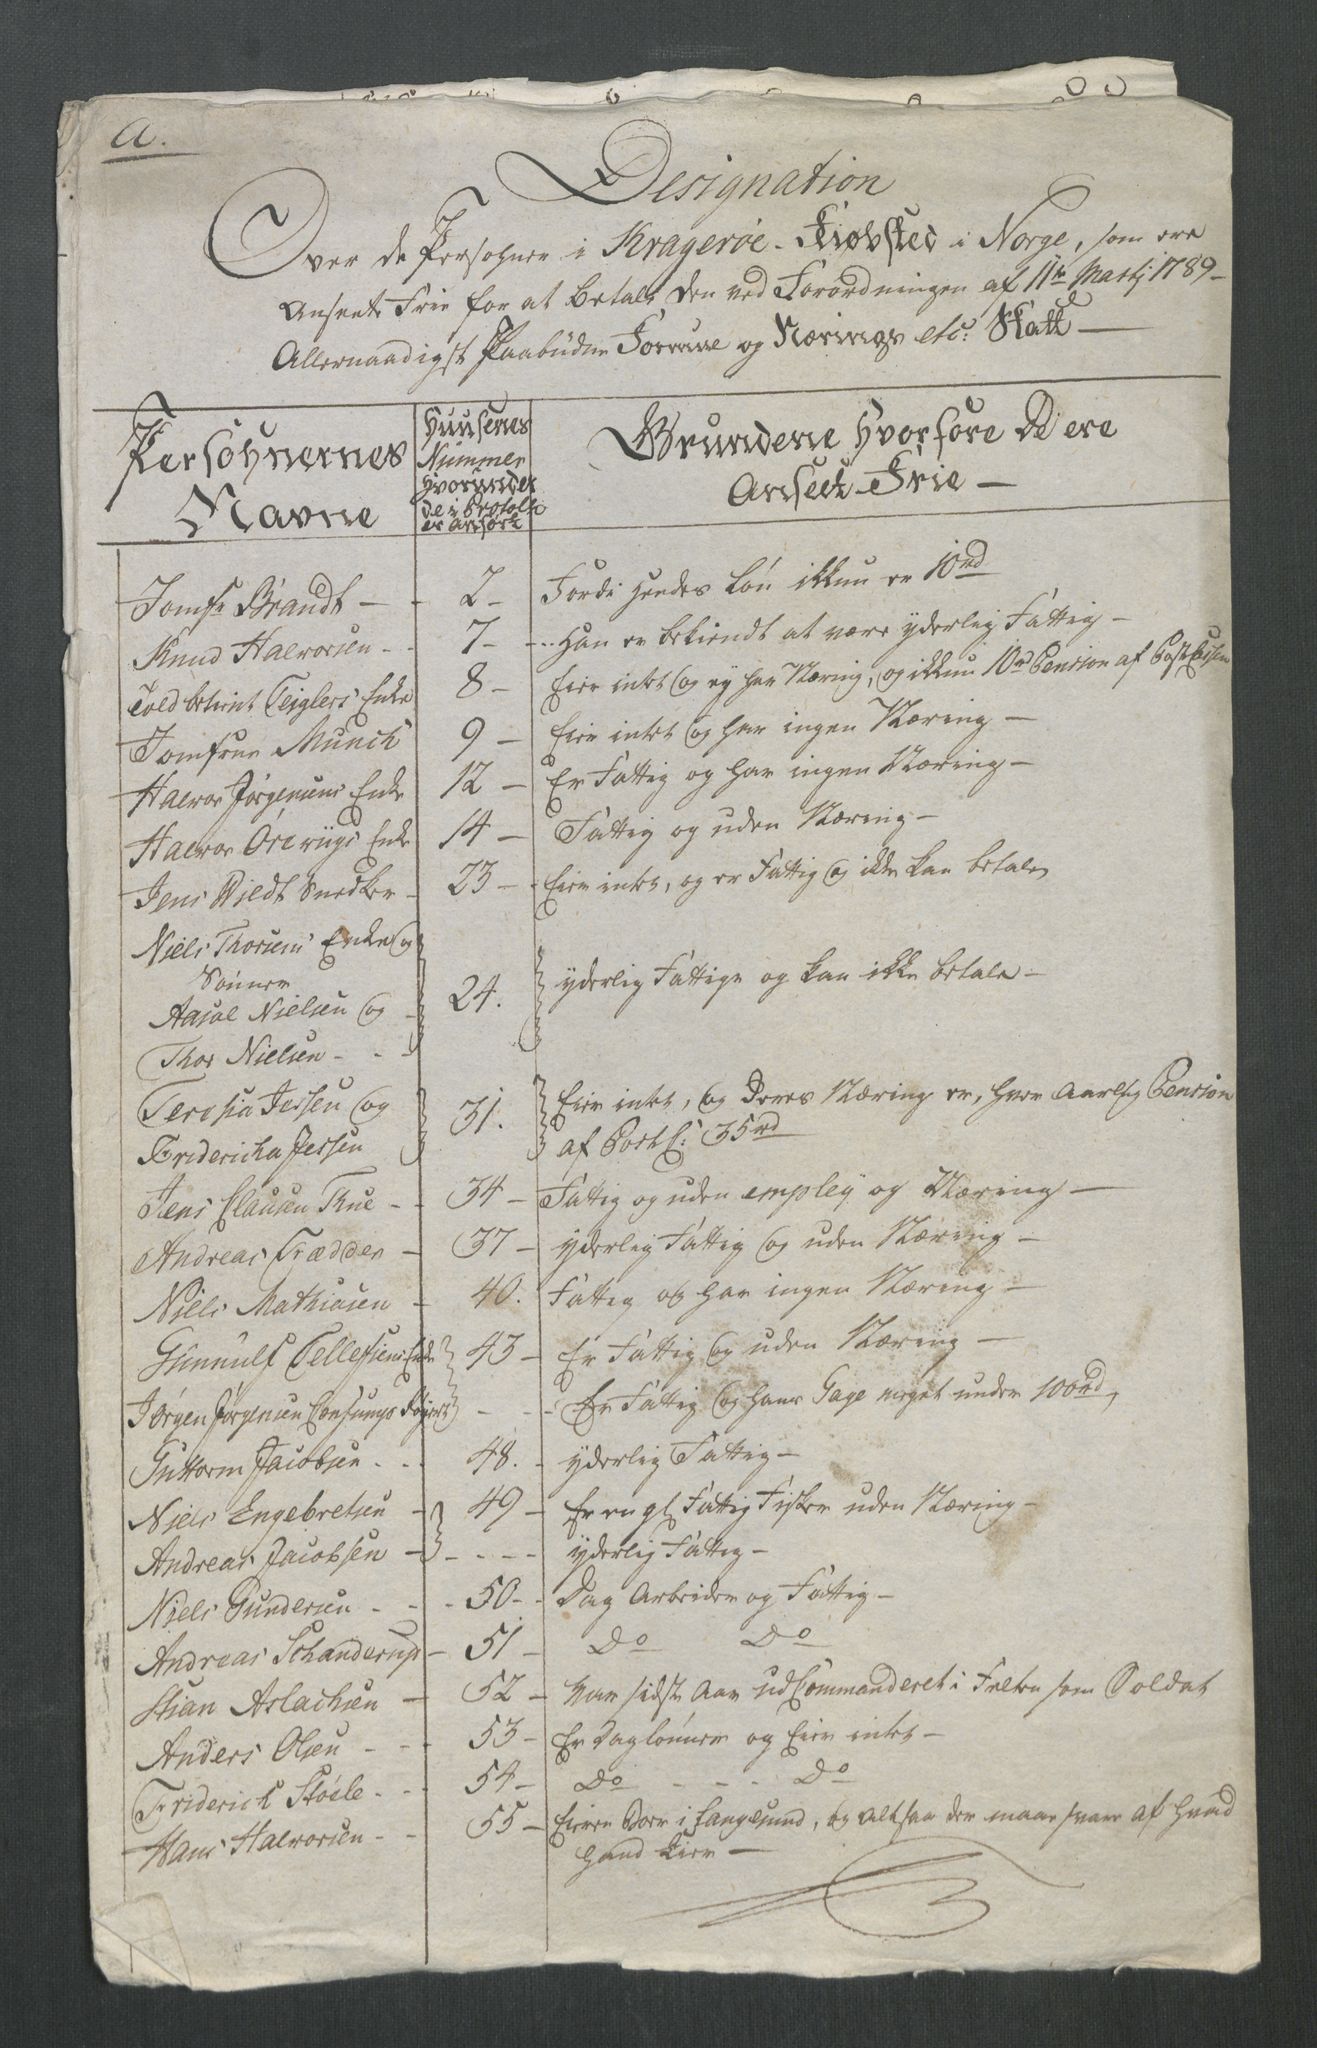 A.
Designation
Over de Persohner i Kragerøe Kiøbsted i Norge, som ere
Anseete Frie for at betale den ved Forordningen af 11te Martj 1789
Allernaadigst Paabudne Formue og Nærings etc: Skatt
Persohnernes Navne
Huusenes Nummer hvorunder de i Protoll: er anført
Grundene hvorfore De ere Anseete Frie
Jomfr Brandt 2 Fordi hendes Løn ikkun er 10 rd
Knud Halvorsen 7 Han er bekiendt at være yderlig Fattig
Toldbetient Teiglers Enke 8 Eier intet og ey har Næring, og ikkun 10 rd Pension af Post Cassen
Jomfrue Munch 9 Eier intet og har ingen Næring
Halvor Jørgensens Enke 12 Er Fattig og har ingen Næring
Halvor Enke 14 Fattig og uden Næring
Jens Wildt Snedker 23 Eier intet, og er Fattig og ikke kan betale
Niels Thorsens Enke og
Sønner
Aasol Nielsen og 24. yderlig Fattige og kan ikke betale
Thor Nielsen
Teresia Jessen og 31. Eier intet, og Deres Næring er, hver Aarlig Pension
Fridericha Jessen af Post C: 35 rd
Jens Clausen True 34 Fattig og uden employ og Næring
Andreas Trædder 37 yderlig Fattig og uden Næring
Niels Mathiasen 40. Fattig og har ingen Næring
Gunnulf Tellefsens Enke 43 Er Fattig og uden Næring
Jørgen Jørgensen Consumps Er Fattig og hans Gage meget under 100 rd
Guttorm Jacobsen 48. yderlig Fattig
Niels Engebretsen 49 Er en gl. Fattig Fisker uden Næring
Andreas Jacobsen yderlig Fattig
Niels Gundersen 50 Dag Arbeider og Fattig
Andreas Schanderup 51 Do Do
Stian Aslachsen 52 Var sidste Aar udCommanderet i Felten som Soldat
Anders Olsen 53 Er Daglønner og Eier intet
Friderich Støele 54 Do Do
Hans Halvorsen 55 Eieren Boer i Langesund, og altsaa der maae svare af hvad
hand Eier